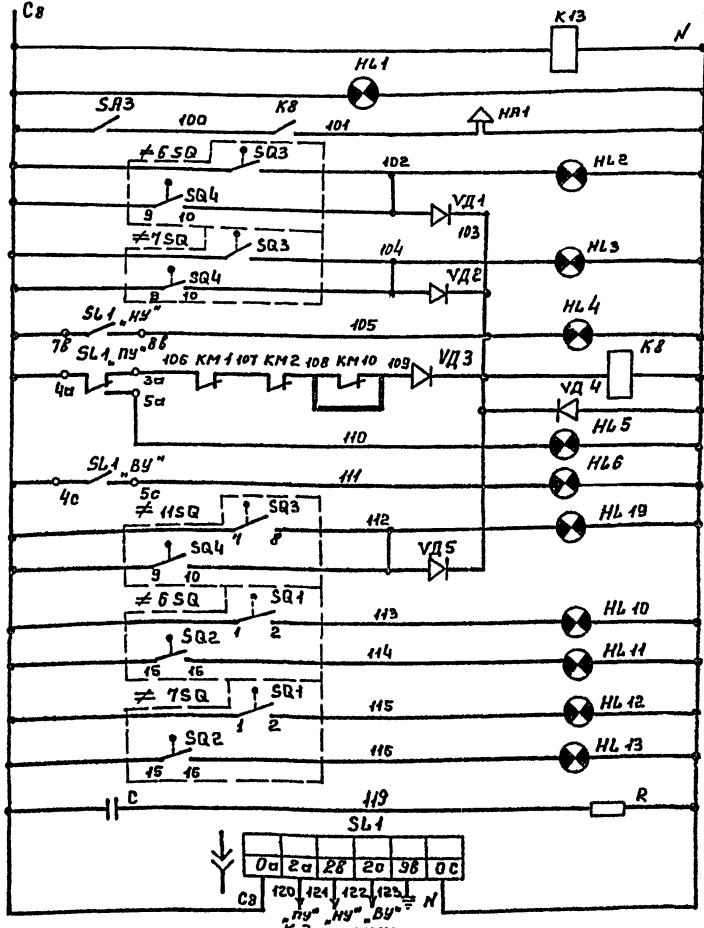 C8 K13 N
HL1
SA3 100 K8 101 HA1
≠6SQ SQ3 102 HL2
SQ4 9 10 VД1 103
≠7SQ SQ3 104 HL3
SQ4 9 10 VД2
SL1 „НУ" 7в 8в 105 HL4
SL1 „ПУ" 4а 3а 5а 106 KM1 107 KM2 108 KM10 109 VД3 K8
VД4
110 HL5
SL1 „ВУ" 4с 5с 111 HL6
≠11SQ SQ3 7 8 112 HL19
SQ4 9 10 VД5
≠6SQ SQ1 1 2 113 HL10
SQ2 15 16 114 HL11
≠7SQ SQ1 1 2 115 HL12
SQ2 15 16 116 HL13
C 119 R
SL1
0а 2а 2в 2с 9в 0с
C8 120 121 122 123 N
„ПУ" „НУ" „ВУ"